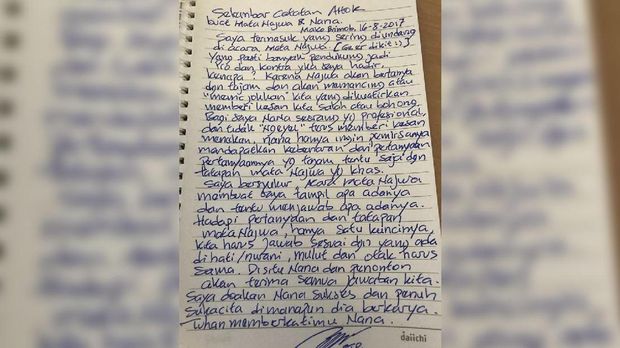 Selembar Catatan Ahok
buat Mata Najwa & Nana.
Mako Brimob, 16-8-2017
Saya termasuk yang sering diundang
di acara Mata Najwa. (Geer dikit :))
yang pasti banyak pendukung jadi
pro dan kontra jika saya hadir,
kenapa? Karena Najwa akan bertanya
dgn tajam dan akan memancing atau
"memojokkan" kita yang dikuatirkan
memberi kesan kita salah atau bohong.
Bagi saya Nana seorang yg profesional,
dan tidak "ngeyel" terus memberi kesan
menekan, Nana hanya ingin pemirsanya
mendapatkan kebenaran dari pertanyaan
pertanyaannya yg tajam tentu saja dgn
tatapan mata Najwa yg khas.
Saya bersyukur, acara Mata Najwa
membuat saya tampil apa adanya
dan tentu menjawab apa adanya.
Hadapi pertanyaan dan tatapan
mata Najwa, hanya satu kuncinya,
kita harus jawab sesuai dgn yang ada
di hati/nurani, mulut dan otak harus
sama. Disitu Nana dan penonton
akan terima semua jawaban kita.
Saya doakan Nana sukses dan penuh
sukacita dimanapun dia berkarya.
Tuhan memberkatimu Nana.
BTP
daiichi